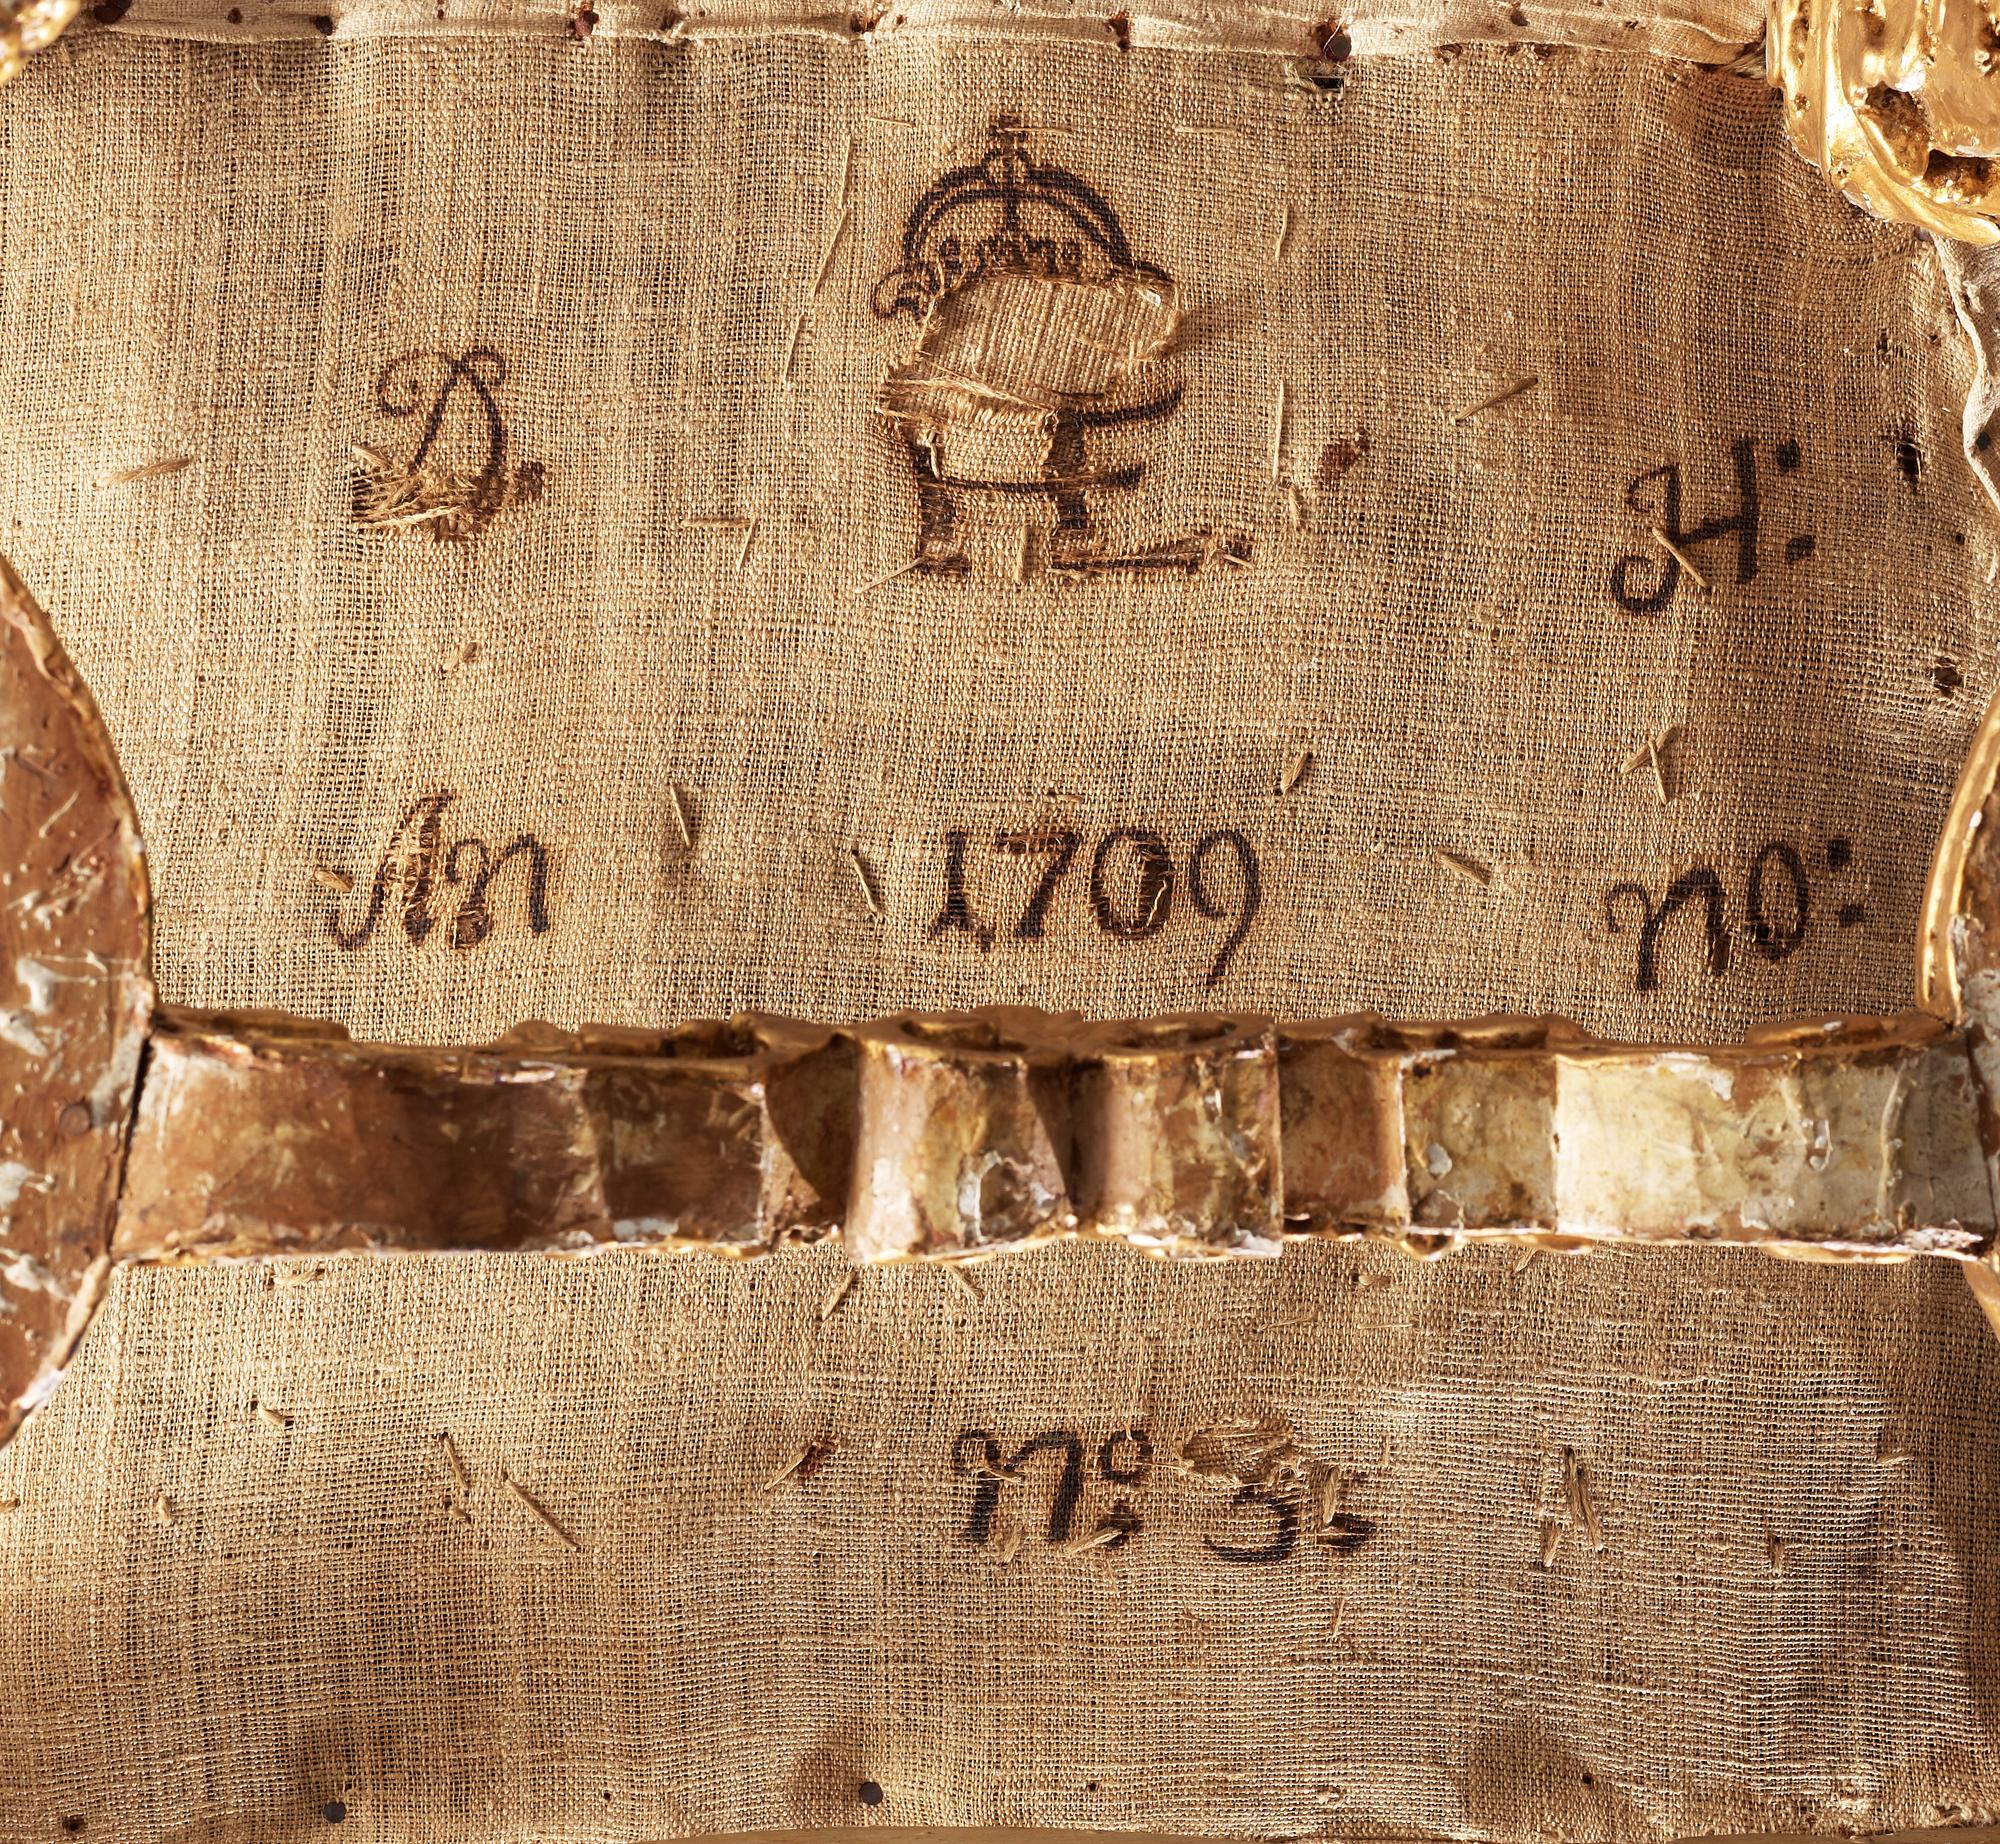 D. H:
An 1709 no:
No 3: